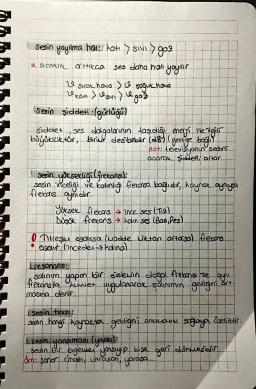 Sesin yayılma hızı: katı > sıvı > gaz
* sıcaklık arttıkça ses daha hızlı yayılır
V sıcak hava > V soğuk hava
V katı > V sıvı > V gaz
Sesin şiddeti: (gürlüğü)
şiddet, ses dalgalarının taşıdığı enerji ile ilgili
büyüklüktür, birimi desibeldir (dB) (genliğe bağlı)
not: televizyonun sesini
açarak şiddeti artar.
Sesin yüksekliği (frekansı):
sesin inceliği ve kalınlığı frekansa bağlıdır, kaynak aynıysa
frekans aynıdır.
Yüksek frekans → ince ses (Tiz)
Düşük frekans → kalın ses (Bas, Pes)
! Titreşim azalırsa (madde miktarı artarsa) frekans
azalır (inceden → kalına)
Rezonans:
salınım yapan bir sistemin doğal frekansı ile aynı
frekansta kuvvet uygulanarak salınımın genliğinin art-
masına denir.
Sesin tınısı:
sesin hangi kaynaktan geldiğini anlamamızı sağlayan özelliktir.
Sesin yansıması (yankı):
sesin bir engelden yansıyıp bize geri dönmesidir.
Örn: sonar cihazı, ultrason, yarasa...